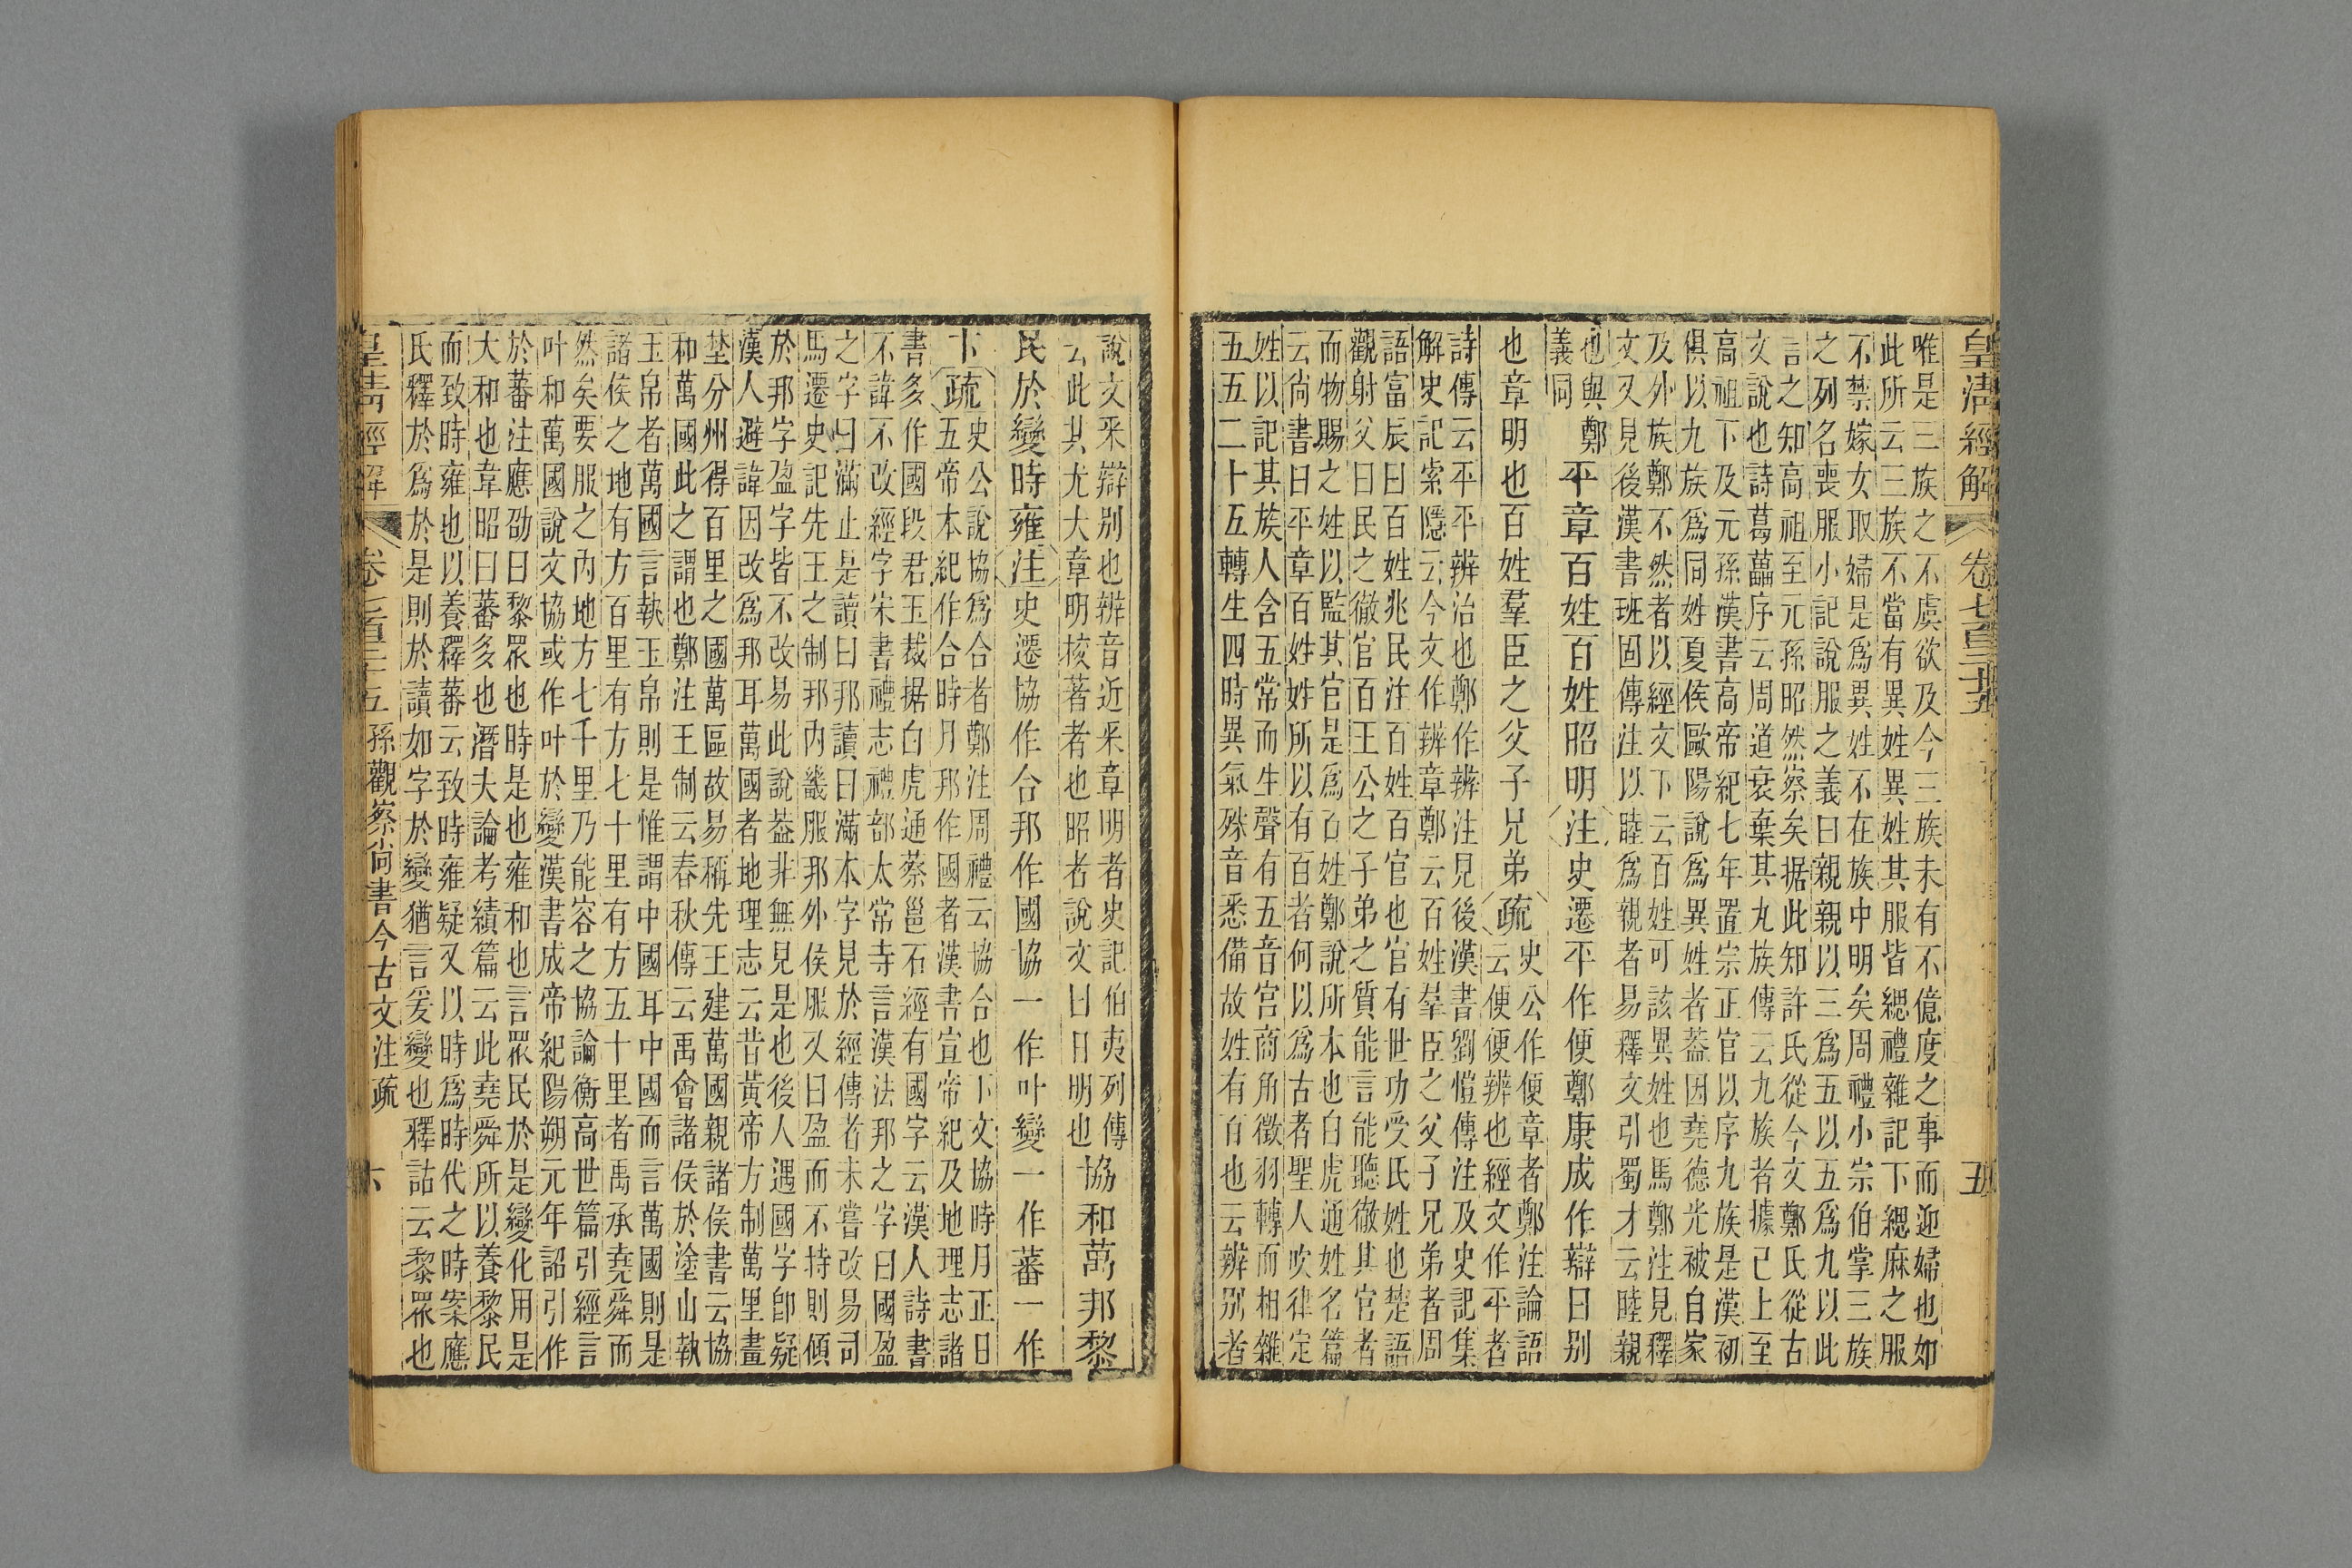 皇清經解
卷七百三十五
五
唯是三族之不虞欲及今三族未有不億度之事而迎婦也如
此所云三族不當有異姓異姓其服皆緦禮雜記下緦麻之服
不禁嫁女取婦是爲異姓不在族中明矣周禮小宗伯掌三族
之列名喪服小記說服之義曰親親以三爲五以五爲九以此
言之知高祖至元孫昭然察矣据此知許氏從今文鄭氏從古
文說也詩葛藟序云周道衰棄其九族傳云九族者據己上至
高祖下及元孫漢書高帝紀七年置宗正官以序九族是漢初
俱以九族爲同姓夏侯歐陽說爲異姓者葢因堯德光被自家
及外族鄭不然者以經文下云百姓可該異姓也馬鄭注見釋
文又見後漢書班固傳注以睦爲親者易釋文引蜀才云睦親
也與鄭
義同
平章百姓百姓昭明注史遷平作便鄭康成作辯曰别
也章明也百姓羣臣之父子兄弟疏
史公作便章者鄭注論語
云便便辨也經文作平者
詩傳云平平辨治也鄭作辨注見後漢書劉愷傳注及史記集
解史記索隱云今文作辨章鄭云百姓羣臣之父子兄弟者周
語富辰曰百姓兆民注百姓百官也官有世功受氏姓也楚語
觀射父曰民之徹官百王公之子弟之質能言能聽徹其官者
而物賜之姓以監其官是爲百姓鄭說所本也白虎通姓名篇
云尙書曰平章百姓姓所以有百者何以爲古者聖人吹律定
姓以記其族人含五常而生聲有五音宫商角徵羽轉而相雜
五五二十五轉生四時異氣殊音悉備故姓有百也云辨别者
說文釆辯别也辨音近釆章明者史記伯夷列傳
云此其尤大章明校著者也昭者說文曰日明也
協和萬邦黎
民於變時雍注史遷協作合邦作國協一作叶變一作蕃一作
卞疏
史公說協爲合者鄭注周禮云協合也下文協時月正日
五帝本紀作合時月邦作國者漢書宣帝紀及地理志諸
書多作國段君玉裁据白虎通蔡邕石經有國字云漢人詩書
不諱不改經字宋書禮志禮部太常寺言漢法邦之字曰國盈
之字曰滿止是讀曰邦讀曰滿本字見於經傳者未嘗改易司
馬遷史記先王之制邦内畿服邦外侯服又曰盈而不持則傾
於邦字盈字皆不改易此說葢非無見是也後人遇國字卽疑
漢人避諱因改爲邦耳萬國者地理志云昔黃帝方制萬里畫
埜分州得百里之國萬區故易稱先王建萬國親諸侯書云協
和萬國此之謂也鄭注王制云春秋傳云禹會諸侯於塗山執
玉帛者萬國言執玉帛則是惟謂中國耳中國而言萬國則是
諸侯之地有方百里有方七十里有方五十里者禹承堯舜而
然矣要服之内地方七千里乃能容之協論衡高世篇引經言
叶和萬國說文協或作叶於變漢書成帝紀陽朔元年詔引作
於蕃注應劭曰黎眾也時是也雍和也言眾民於是變化用是
大和也韋昭曰蕃多也潛夫論考績篇云此堯舜所以養黎民
而致時雍也以養釋蕃云致時雍疑又以時爲時代之時案應
氏釋於爲於是則於讀如字於變猶言爰變也釋詁云黎眾也
皇清經解
卷七百三十五 孫觀察尚書今古文注疏
六